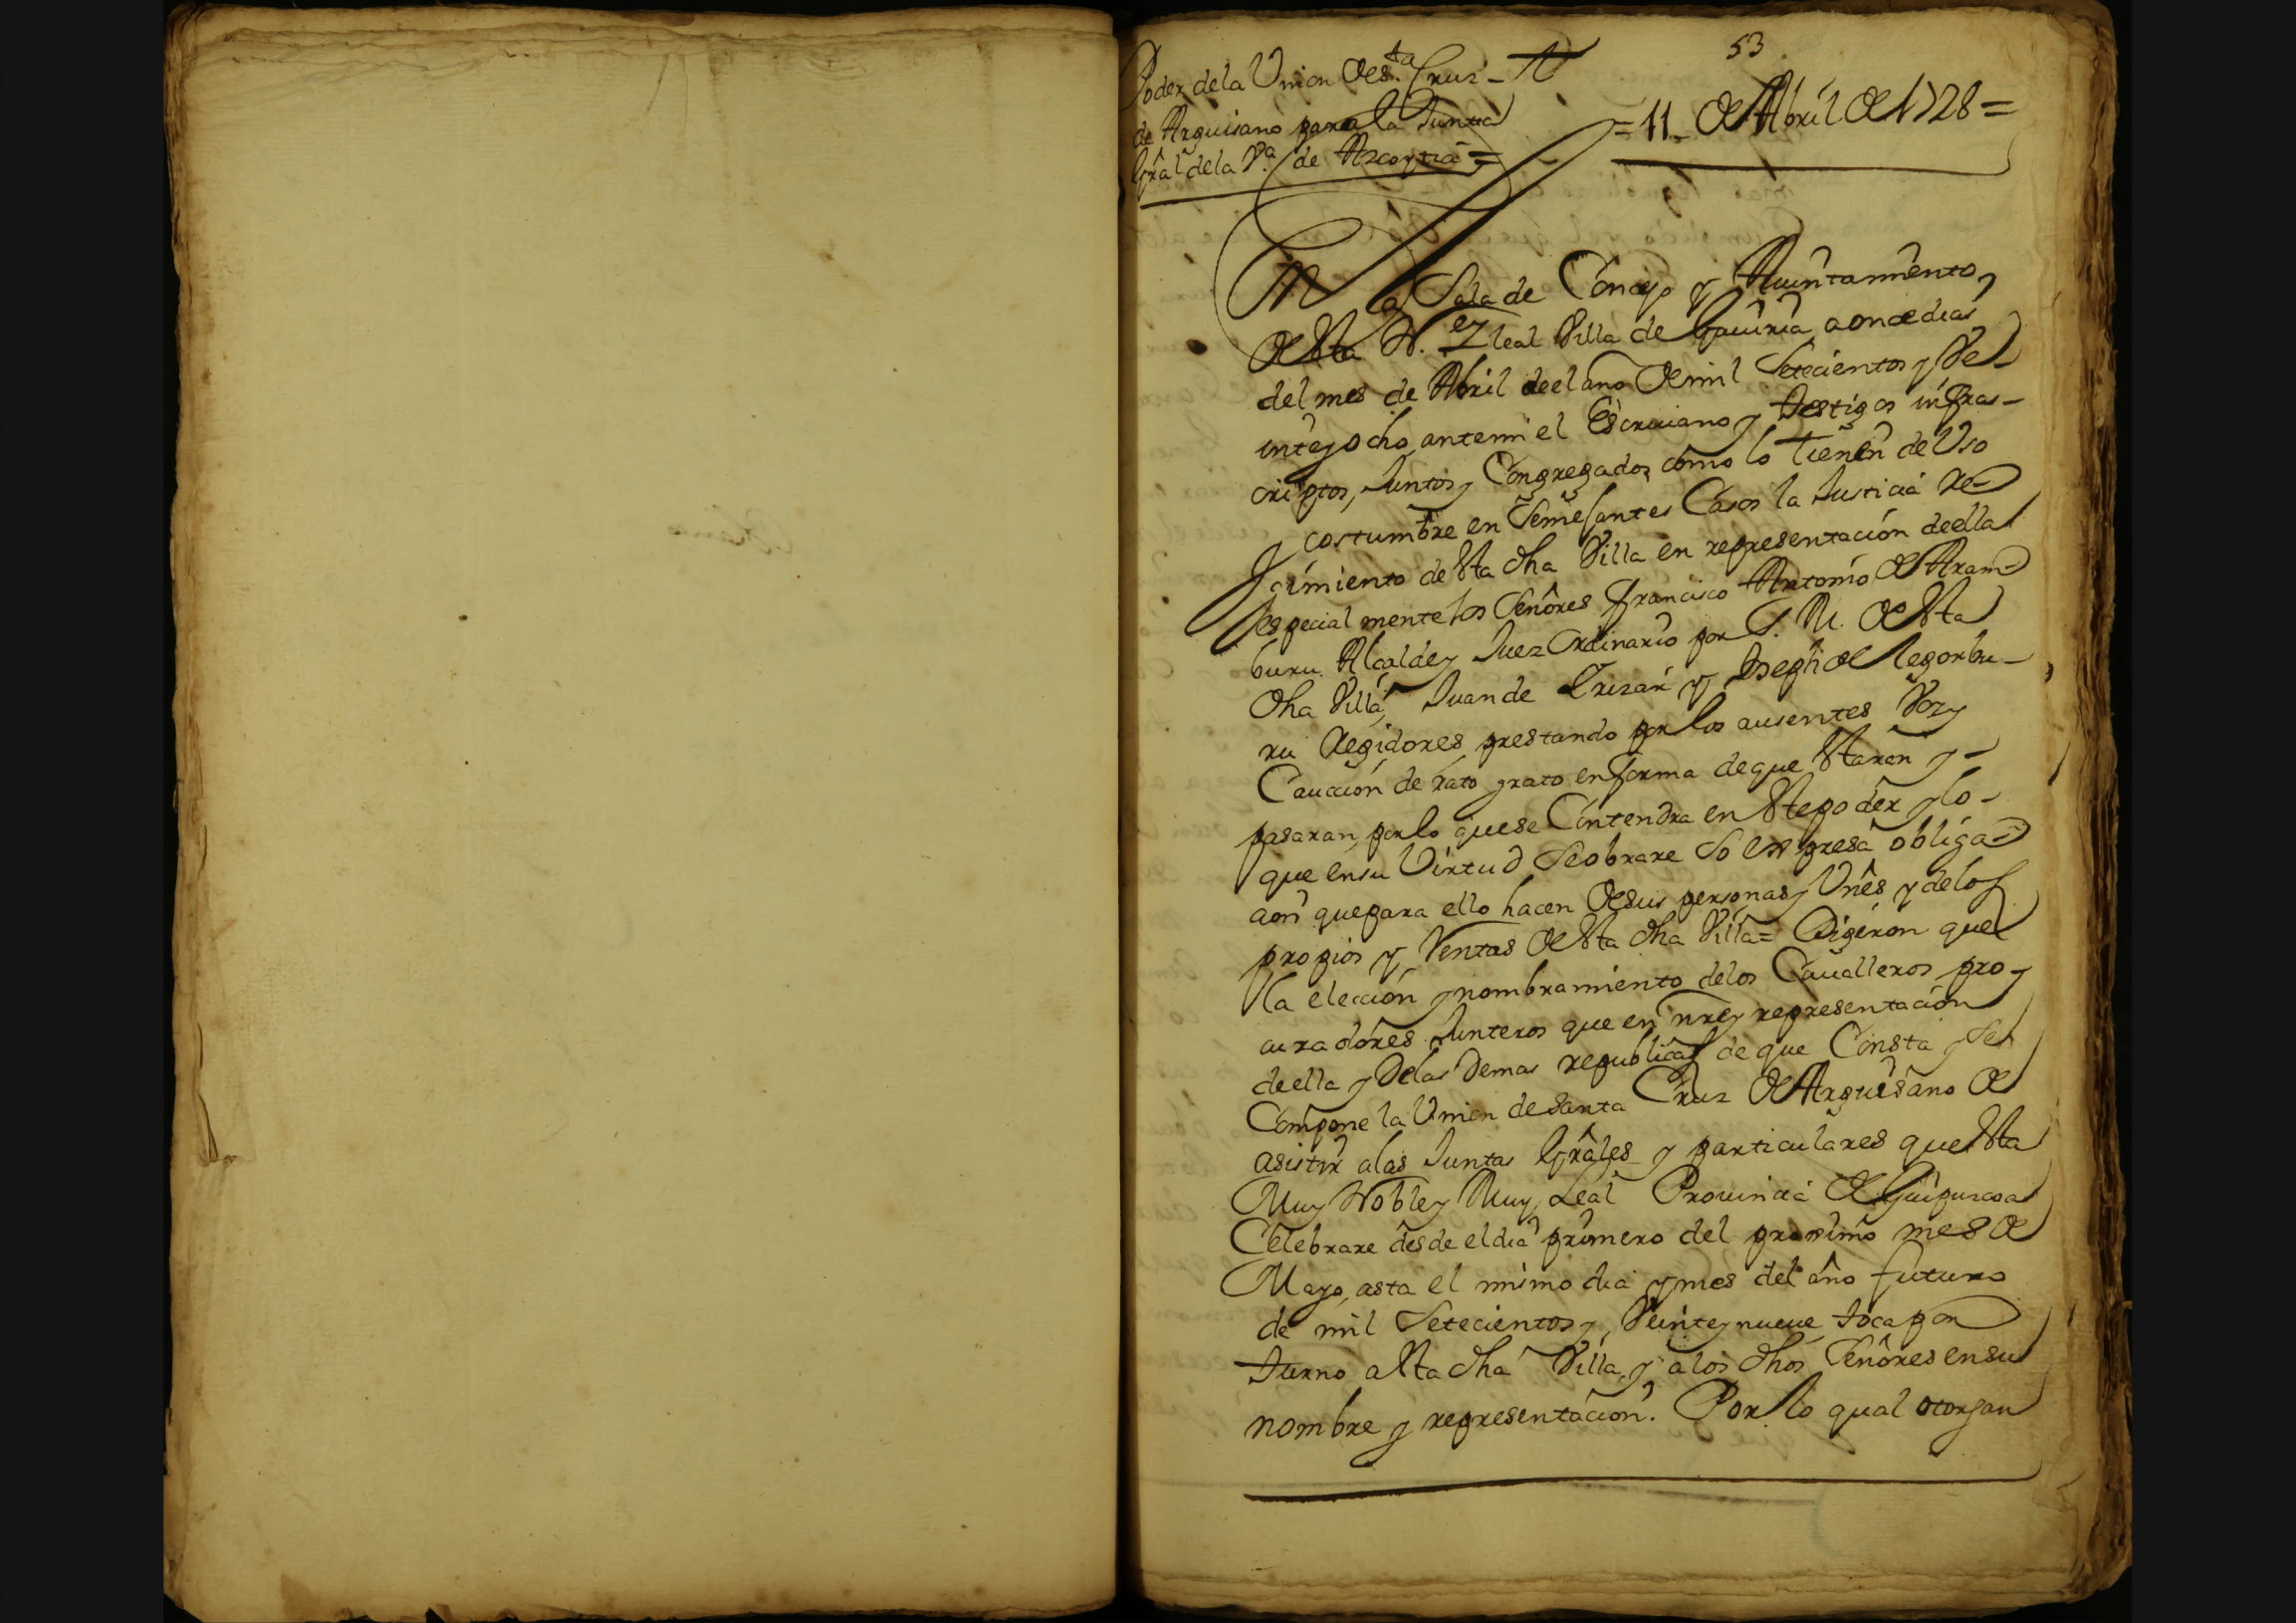 53
Poder de la Union de S.ta Cruz -
de Arguisano para la Junta
Gral de la V.a de Azcoytia =
= 11 - de Abril de 1728 =
En la Sala de Concejo y Aiuntamiento,
de esta N. y leal Villa de Gaviria, a once dias
del mes de Abril de el año de mil Setecientos y Ve-
inte y ocho, ante mi el Escrivano y testigos infras-
criptos, Juntos y Congregados, como lo tienen de Uso
y costumbre en Semejantes Casos la Justicia Re-
jimiento de esta dha Villa en representacion de ella
especialmente los Señores Francisco Antonio de Aram-
buru Alcalde y Juez Ordinario por S. M. de esta
dha Villa, Juan de Irizar y Joseph de Legorbu-
ru Regidores prestando por los ausentes Voz y
Caucion de rato grato en forma de que estaran y -
pasaran, por lo que se Contendra en este poder y lo -
que en su Virtud Se obrare So expresa obliga-
cion que para ello hacen de sus personas y Vnês y de los
propios y Rentas de esta dha Villa = Digeron que
la eleccion y nombramiento de los Cavalleros pro-
curadores Junteros que en nre y representacion
de ella y de las demas republicas de que Consta y Se
Compone la Union de Santa Cruz de Arguisano de
asistir a las Juntas Grâles y particulares que esta
Muy Noble y Muy Leal Provincia de Guipuzcoa
Celebrare desde el dia primero del proximo mes de
Mayo, asta el mismo dia y mes del año futuro
de mil Setecientos y Veinte y nueve, toca por
turno a esta dha Villa, y a los dhos Señores en su
nombre y representacion. Por lo qual otorgan